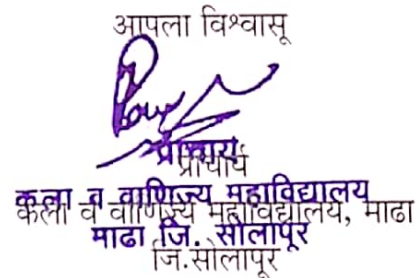 आपला विश्वासू
प्राचार्य
प्राचार्य
कला व वाणिज्य महाविद्यालय
कला व वाणिज्य महाविद्यालय, माढा
माढा जि. सोलापूर
जि.सोलापूर